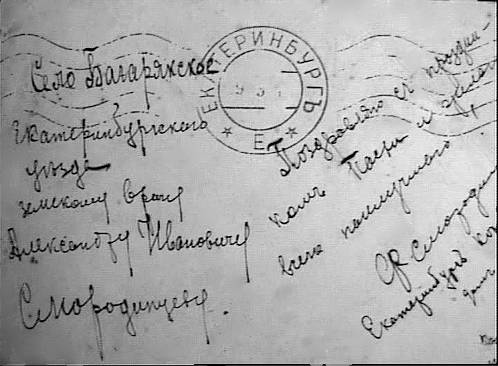 Село Багарякское
Екатеринбургского
уезда
земскому врачу
Александру Ивановичу
Смородинцеву.
ЕКАТЕРИНБУРГЪ
Е
Поздравляю съ праздни
комъ Пасхи и желаю
всего наилучшего
Смородин
Екатеринбургъ